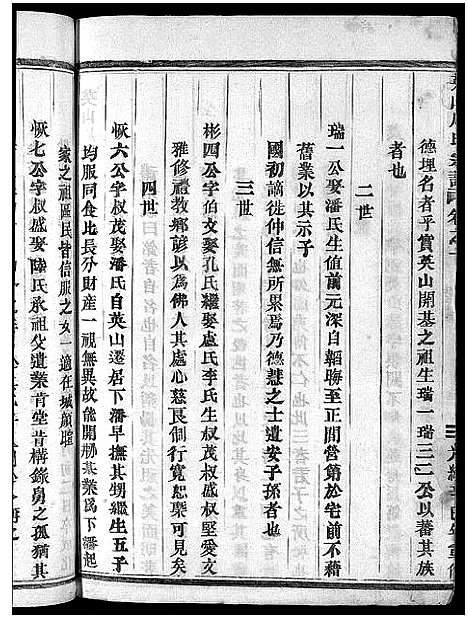 德埋名者乎實英山開基之祖生瑞一瑞三二公以蕃其族
者也
二世
瑞一公娶潘氏生値前元深自韜晦至正間營第於宅前不藉
舊業以其示子
國初謫徙仲信無所累焉乃德慧之士遺安子孫者也
三世
彬四公字伯文娶孔氏繼娶盧氏李氏生叔茂叔盛叔堅愛文
雅修禮教鄉諺以爲佛人其處心慈良制行寬恕槩可見矣
四世
恢六公字叔茂娶潘氏自英山遷居下潘早撫其甥繼生五子
均服同食比長分財產一視無異故能開刱基業爲下潘起
家之祖區民皆信服之女一適在城顧瓘
恢七公字叔盛娶陸氏承祖父遺業肯堂肯構錄舅之孤猶其